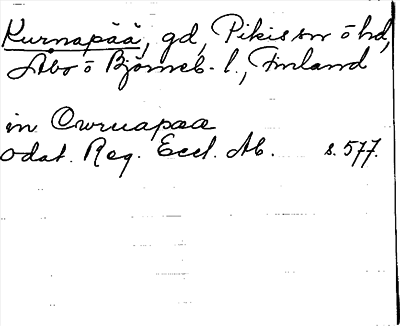 Kurnapää, gd, Pikis sn ö hd,
Åbo ö Björneb. l., Finland
in Cwrnapaa
odat. Reg. Eccl. Ab. s. 577.